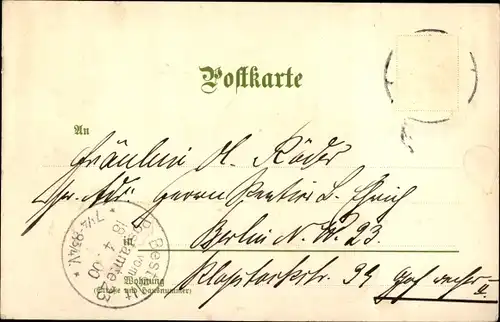 Postkarte
An
Fräulein M. Röder
pr. Adr. Herrn Rentier L.
in Berlin N. W. 23.
Wohnung
(Straße und Hausnummer)
Klopstockstr. 39
Bestellt
vom
Postamte 23
18 4 00
7¼-8¾V.